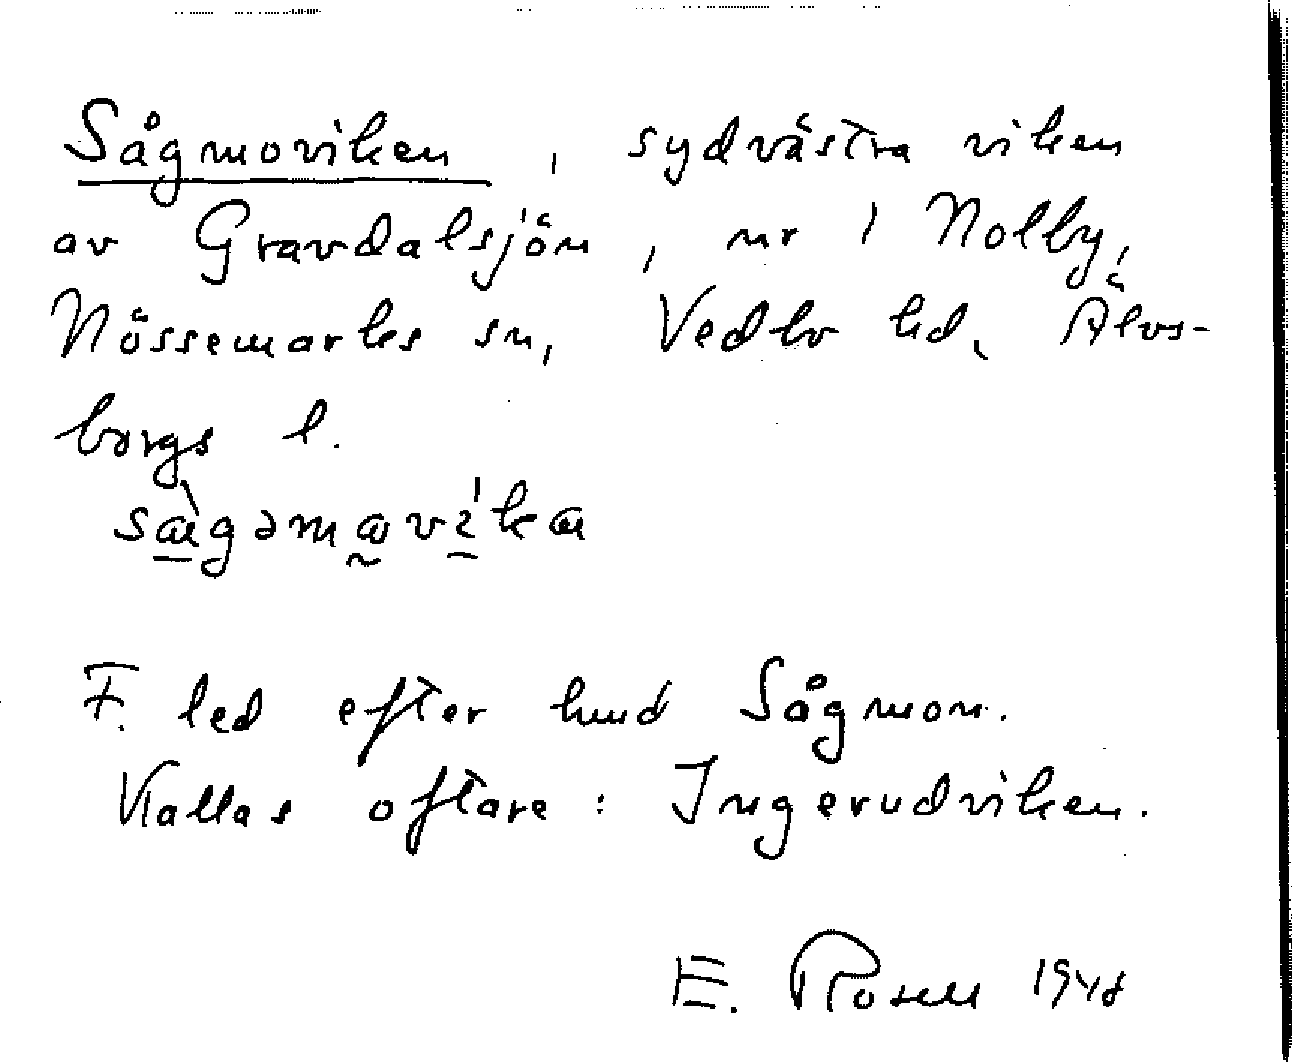 Sågmoviken, sydvästra viken
av Gravdalsjön, nr 1 Nolby,
Nössemarks sn, Vedbo hd, Älvs-
borgs l.
sàgəmavíka
F. led efter hmd Sågmon.
Kallas oftare: Ingerudviken.
E. Rosell 1948